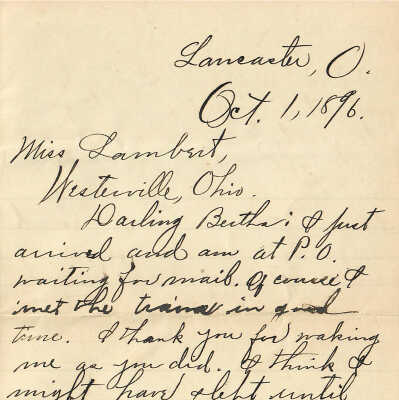 Lancaster, O.
Oct. 1, 1896.
Miss Lambert,
Westerville, Ohio.
Darling Bertha: I just
arrived and am at P.O.
waiting for mail. Of course I
met the train in good
time. I thank you for waking
me as you did. I think I
might have slept until